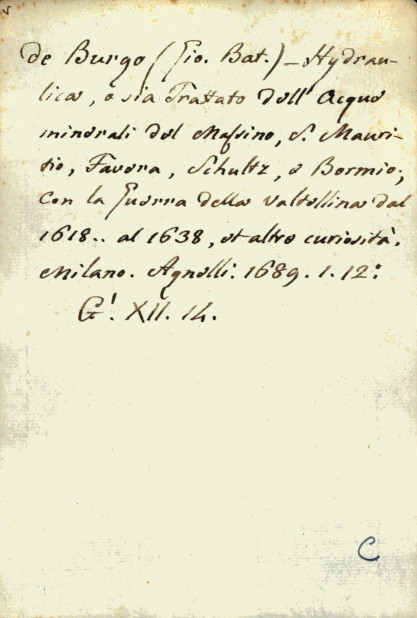 de Burgo (Gio. Bat.) - Hydrau-
lica, o sia Trattato dell' Acque
minerali del Masino, S. Mauri-
tio, Favera, Schultz, e Bormio;
con la Guerra della Valtellina dal
1618.. al 1638, et altre curiosità.
Milano. Agnelli. 1689. 1. 12°:
G'. XII. 14.
C